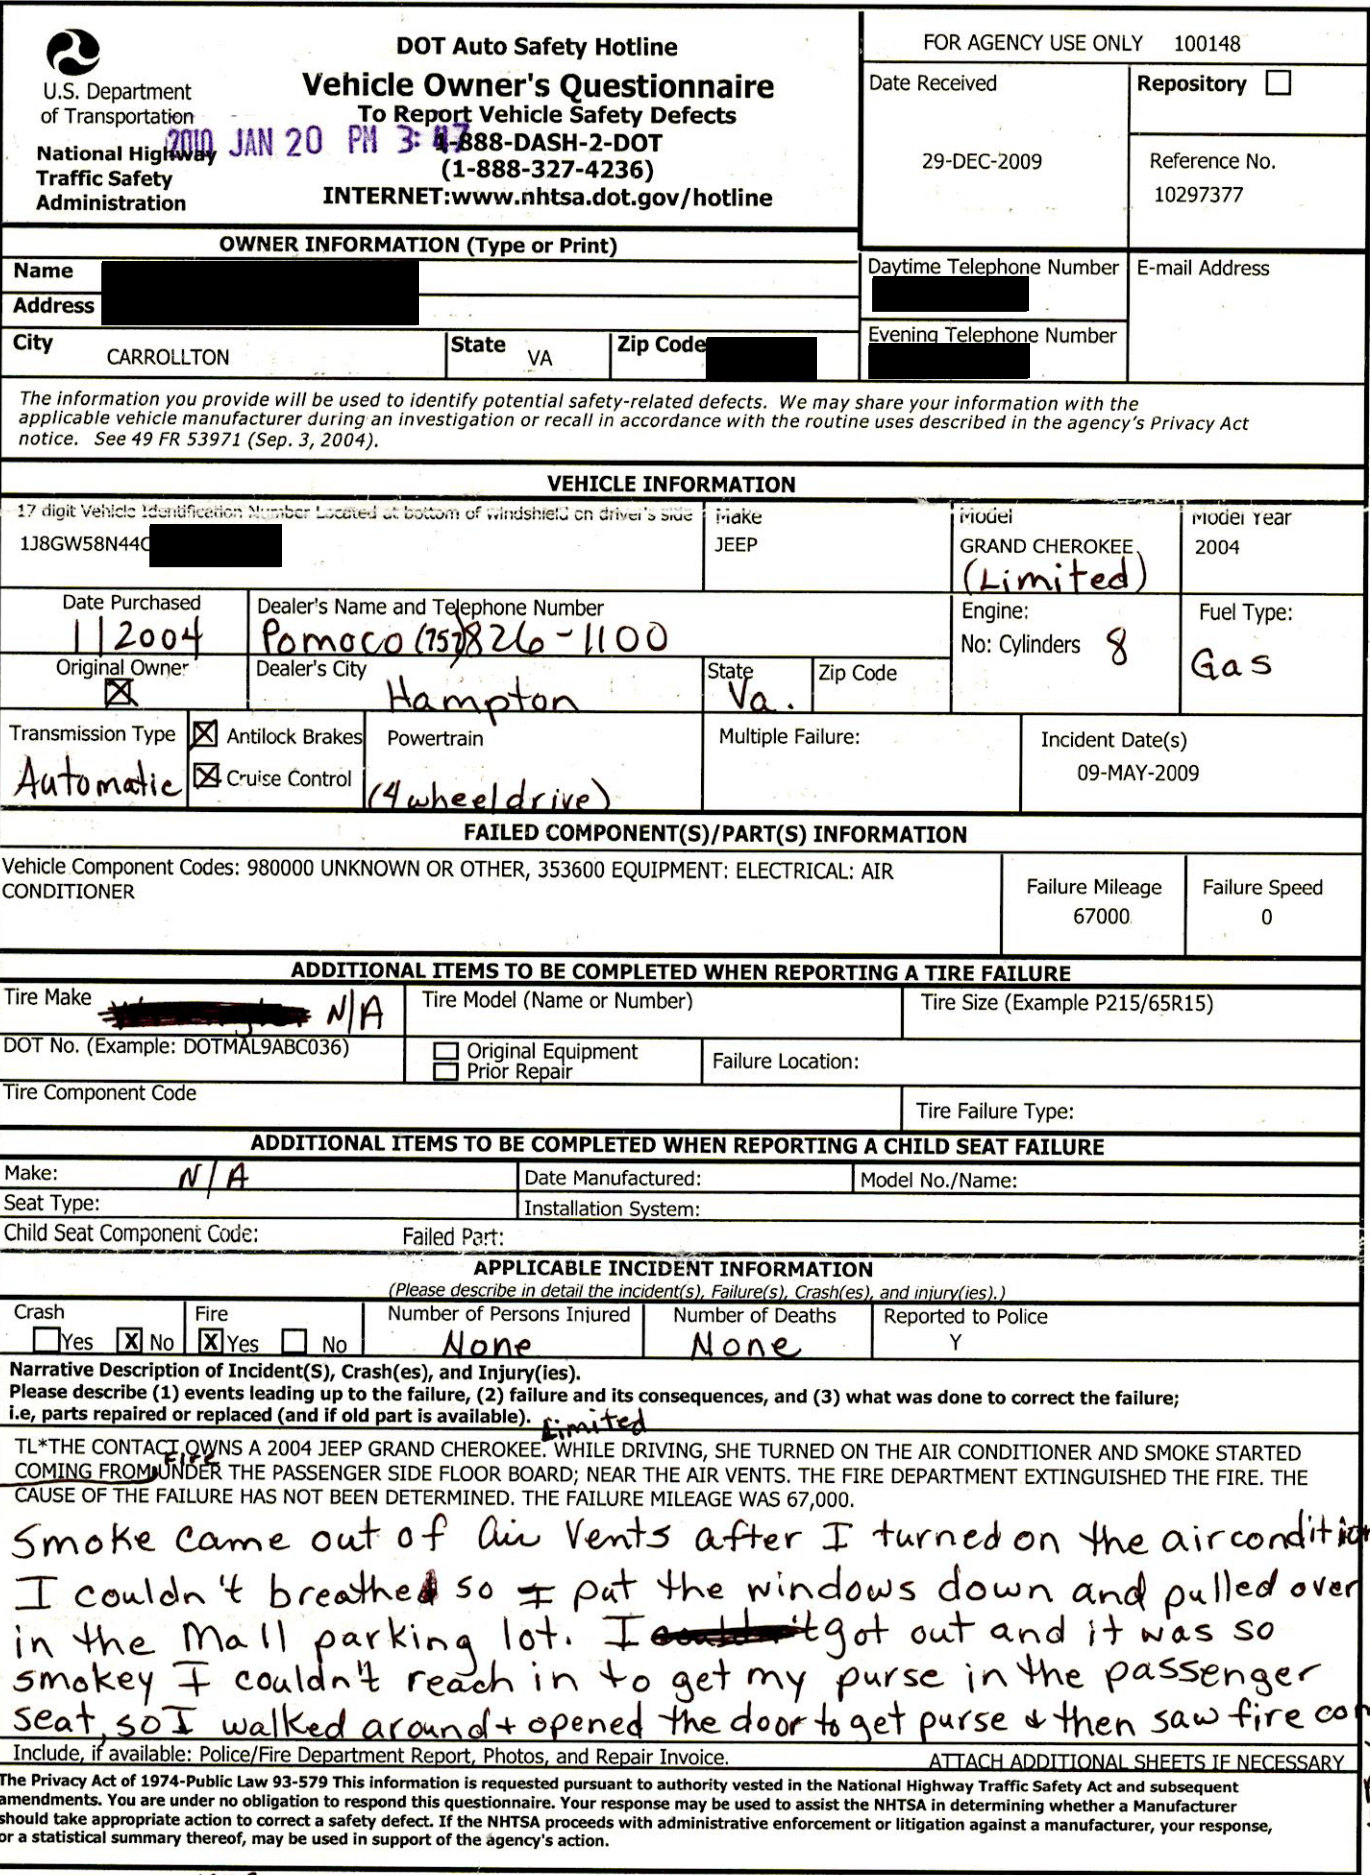 DOT Auto Safety Hotline
Vehicle Owner's Questionnaire
To Report Vehicle Safety Defects
1-888-DASH-2-DOT
(1-888-327-4236)
INTERNET:www.nhtsa.dot.gov/hotline
U.S. Department
of Transportation
National Highway
Traffic Safety
Administration
2010 JAN 20 PM 3:47
FOR AGENCY USE ONLY 100148
Date Received
29-DEC-2009
Repository
Reference No.
10297377
OWNER INFORMATION (Type or Print)
Name
Address
City CARROLLTON State VA Zip Code
Daytime Telephone Number
Evening Telephone Number
E-mail Address
The information you provide will be used to identify potential safety-related defects. We may share your information with the
applicable vehicle manufacturer during an investigation or recall in accordance with the routine uses described in the agency's Privacy Act
notice. See 49 FR 53971 (Sep. 3, 2004).
VEHICLE INFORMATION
17 digit Vehicle Identification Number Located at bottom of windshield on driver's side
1J8GW58N44C
Make
JEEP
Model
GRAND CHEROKEE
(Limited)
Model Year
2004
Date Purchased
112004
Dealer's Name and Telephone Number
Pomoco (757)826-1100
Engine:
No: Cylinders 8
Fuel Type:
Gas
Original Owner X
Dealer's City
Hampton
State
Va.
Zip Code
Transmission Type
Automatic
X Antilock Brakes
X Cruise Control
Powertrain
(4 wheel drive)
Multiple Failure:
Incident Date(s)
09-MAY-2009
FAILED COMPONENT(S)/PART(S) INFORMATION
Vehicle Component Codes: 980000 UNKNOWN OR OTHER, 353600 EQUIPMENT: ELECTRICAL: AIR
CONDITIONER
Failure Mileage
67000
Failure Speed
0
ADDITIONAL ITEMS TO BE COMPLETED WHEN REPORTING A TIRE FAILURE
Tire Make N/A
Tire Model (Name or Number)
Tire Size (Example P215/65R15)
DOT No. (Example: DOTMAL9ABC036)
Original Equipment
Prior Repair
Failure Location:
Tire Component Code
Tire Failure Type:
ADDITIONAL ITEMS TO BE COMPLETED WHEN REPORTING A CHILD SEAT FAILURE
Make: N/A Date Manufactured: Model No./Name:
Seat Type: Installation System:
Child Seat Component Code: Failed Part:
APPLICABLE INCIDENT INFORMATION
(Please describe in detail the incident(s), Failure(s), Crash(es), and injury(ies).)
Crash
Yes X No
Fire
X Yes No
Number of Persons Injured
None
Number of Deaths
None
Reported to Police
Y
Narrative Description of Incident(S), Crash(es), and Injury(ies).
Please describe (1) events leading up to the failure, (2) failure and its consequences, and (3) what was done to correct the failure;
i.e, parts repaired or replaced (and if old part is available).
Limited
TL*THE CONTACT OWNS A 2004 JEEP GRAND CHEROKEE. WHILE DRIVING, SHE TURNED ON THE AIR CONDITIONER AND SMOKE STARTED
Fire
COMING FROM UNDER THE PASSENGER SIDE FLOOR BOARD; NEAR THE AIR VENTS. THE FIRE DEPARTMENT EXTINGUISHED THE FIRE. THE
CAUSE OF THE FAILURE HAS NOT BEEN DETERMINED. THE FAILURE MILEAGE WAS 67,000.
Smoke came out of air vents after I turned on the air condition
I couldn't breathe so I put the windows down and pulled over
in the Mall parking lot. I got out and it was so
smokey I couldn't reach in to get my purse in the passenger
seat, so I walked around + opened the door to get purse & then saw fire
Include, if available: Police/Fire Department Report, Photos, and Repair Invoice.
ATTACH ADDITIONAL SHEETS IF NECESSARY
The Privacy Act of 1974-Public Law 93-579 This information is requested pursuant to authority vested in the National Highway Traffic Safety Act and subsequent
amendments. You are under no obligation to respond this questionnaire. Your response may be used to assist the NHTSA in determining whether a Manufacturer
should take appropriate action to correct a safety defect. If the NHTSA proceeds with administrative enforcement or litigation against a manufacturer, your response,
or a statistical summary thereof, may be used in support of the agency's action.